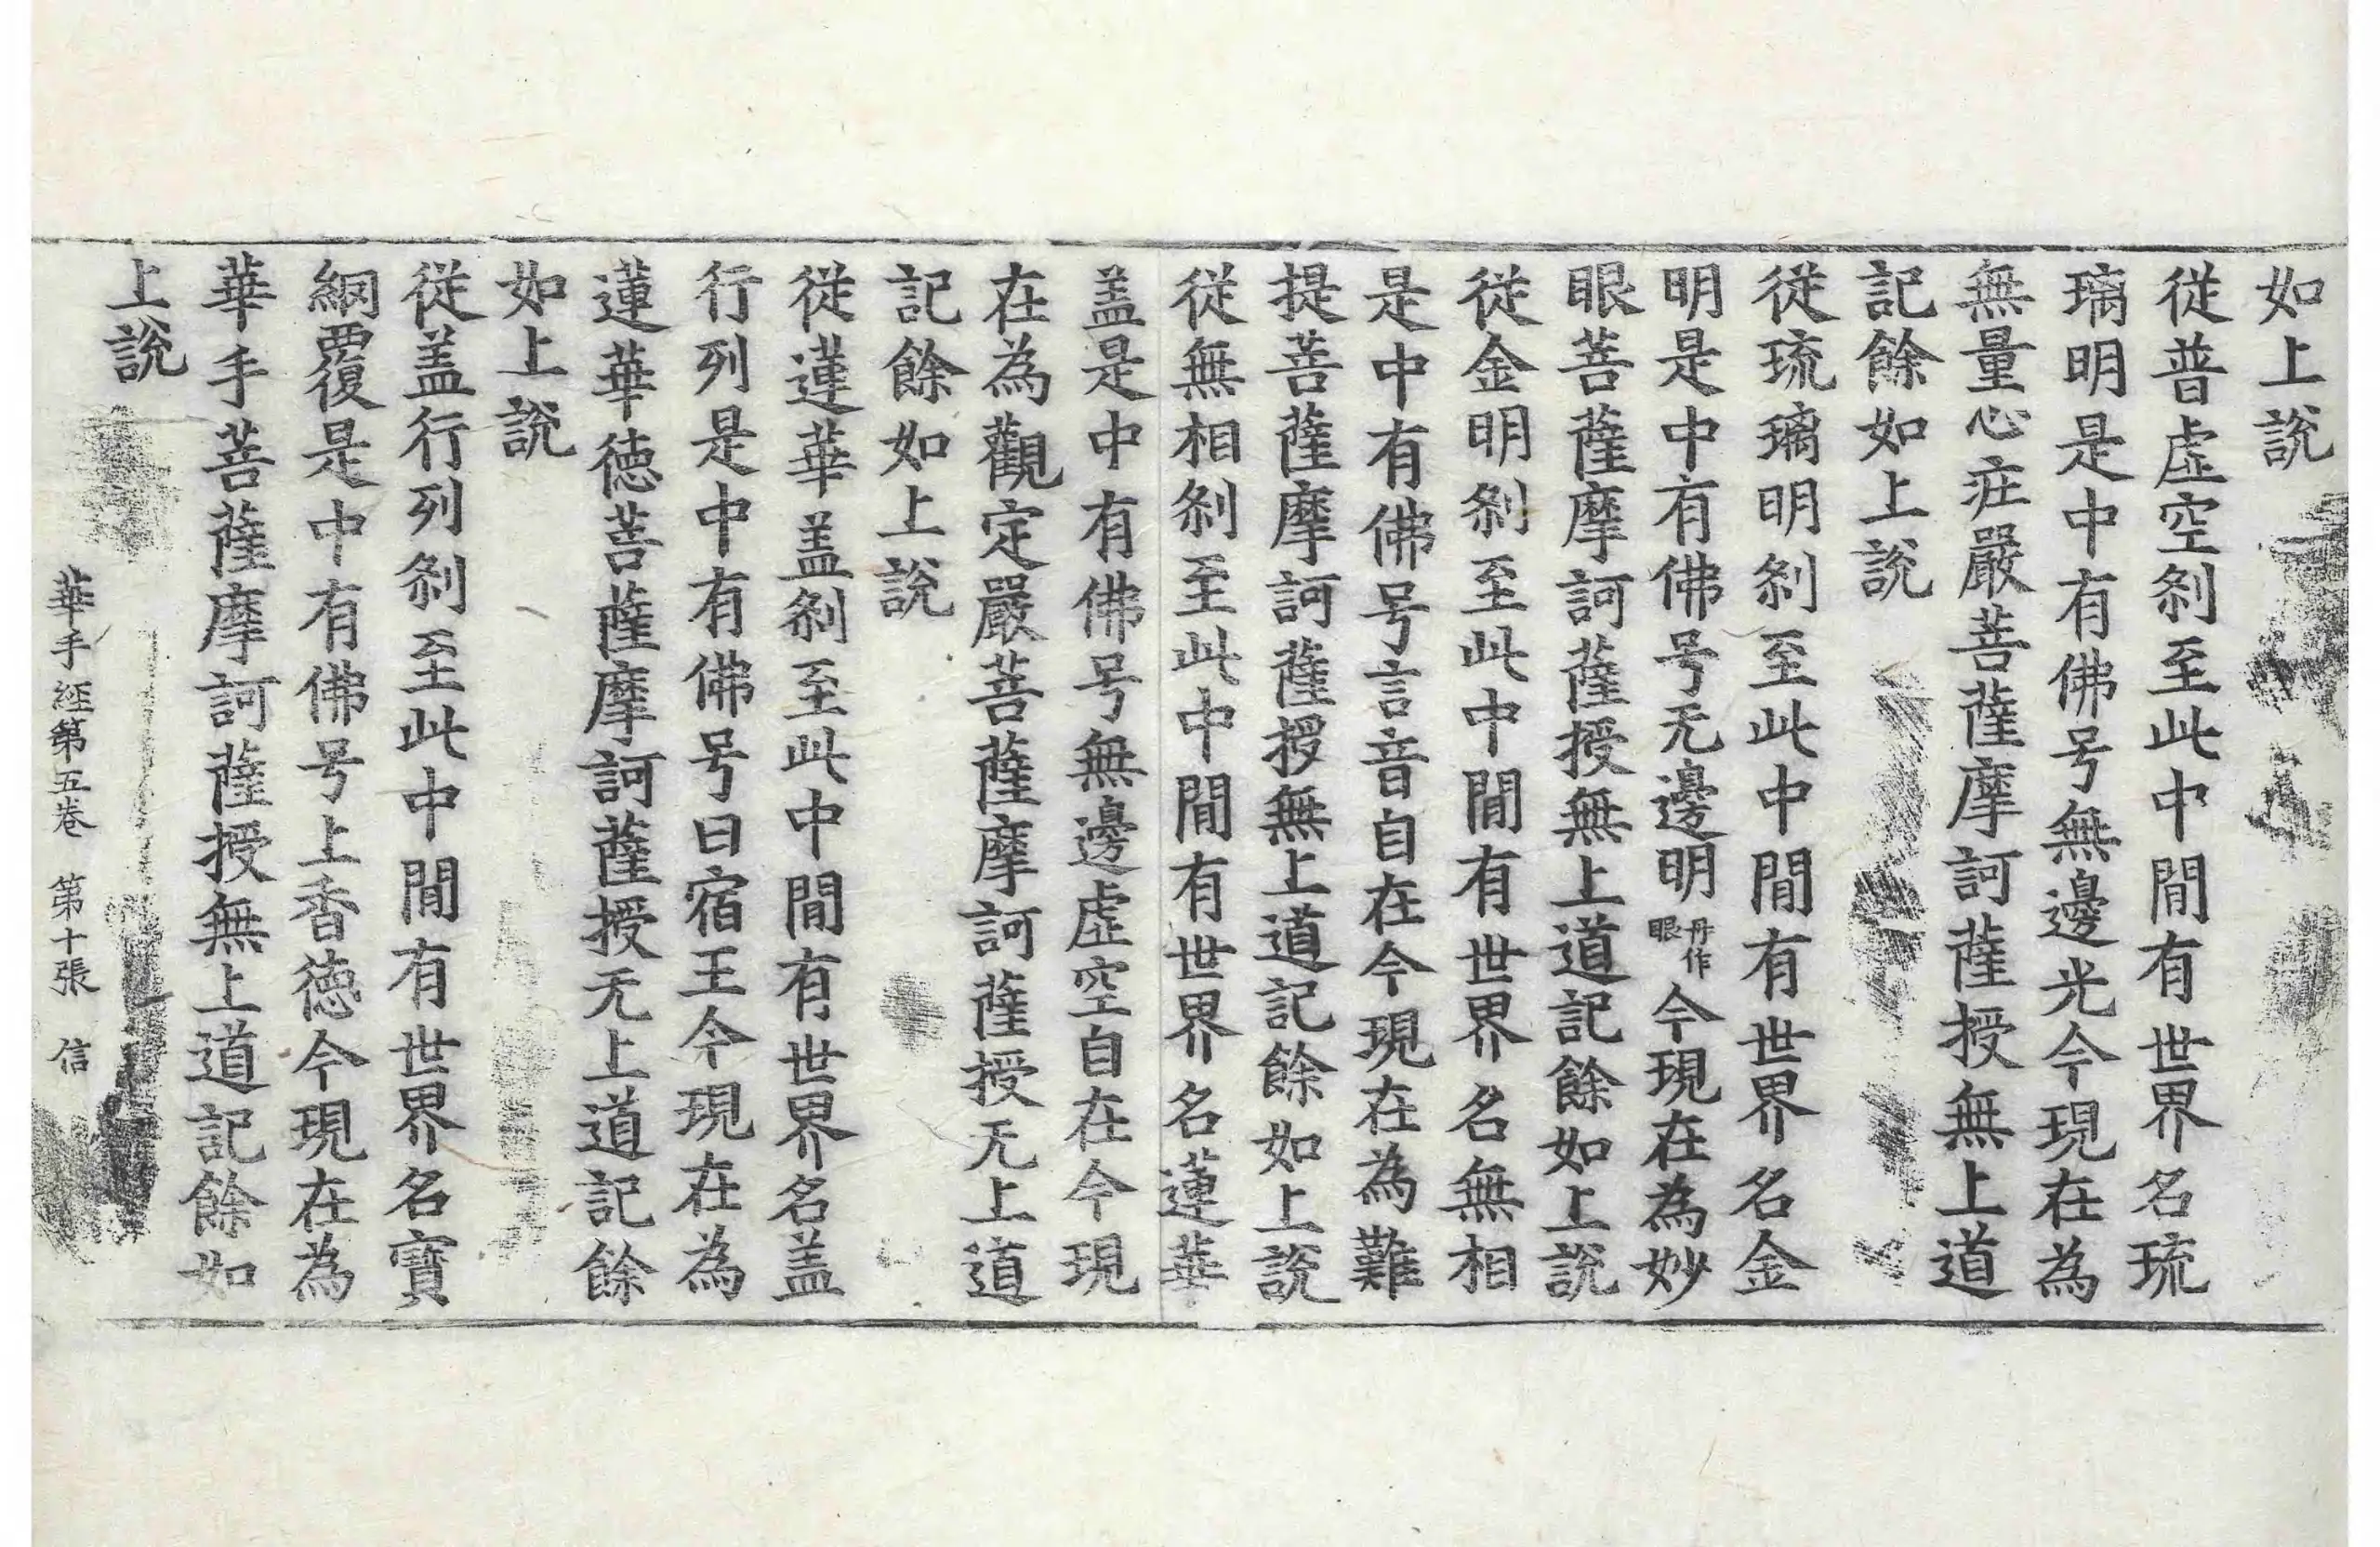 如上說
從普虛空剎至此中閒有世界名琉
璃明是中有佛号無邊光今現在為
無量心㽵嚴菩薩摩訶薩授無上道
記餘如上說
從琉璃明剎至此中閒有世界名金
明是中有佛号无邊明丹作眼今現在為妙
眼菩薩摩訶薩授無上道記餘如上說
從金明剎至此中閒有世界名無相
是中有佛号言音自在今現在為難
提菩薩摩訶薩授無上道記餘如上說
從無相剎至此中閒有世界名蓮華
盖是中有佛号無邊虛空自在今現
在為觀定嚴菩薩摩訶薩授无上道
記餘如上說
從蓮華盖剎至此中閒有世界名盖
行列是中有佛号曰宿王今現在為
蓮華德菩薩摩訶薩授无上道記餘
如上說
從盖行列剎至此中閒有世界名寶
網覆是中有佛号上香德今現在為
華手菩薩摩訶薩授無上道記餘如
上說
華手經第五卷 第十張 信